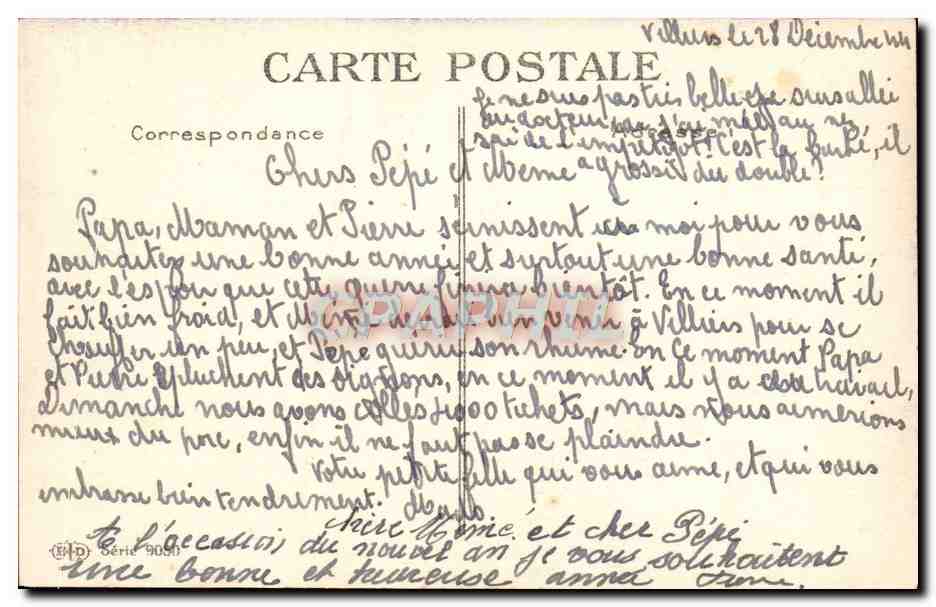 Villiers le 28 Décembre 44
CARTE POSTALE
Je ne suis pas très belle je suis allée
au docteur car j'ai mal au ne
Correspondance
Adresse
c'est la barbe, il
Chers Pépé et Meme
a grossit du double!
Papa, Maman et Pierre se'inissent moi pour vous
souhaiter une bonne année et surtout une bonne santé,
avec l'espoir que cette guerre finira bientôt. En ce moment il
fait bien froid, et Mémé venir à Villiers pour se
chauffer un peu, et Pépé guérir son rhume. En ce moment Papa
et Pierre épluchent des oignons, en ce moment il y a du travail,
Dimanche nous avons collés 4000 tickets, mais nous aimerions
mieux du porc, enfin il ne faut pas se plaindre.
Votre petite fille qui vous aime, et qui vous
embrasse bien tendrement. Mado
chère Mémé et cher Pépé
A l'occasion du nouvel an je vous souhaitent
END Série 9050
une bonne et heureuse année
CPAPHIL